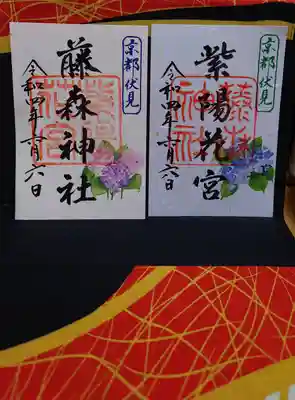 京都伏見
藤森神社
令和四年六月六日
紫陽
花宮
京都伏見
紫陽花宮
令和四年六月六日
藤森
神社